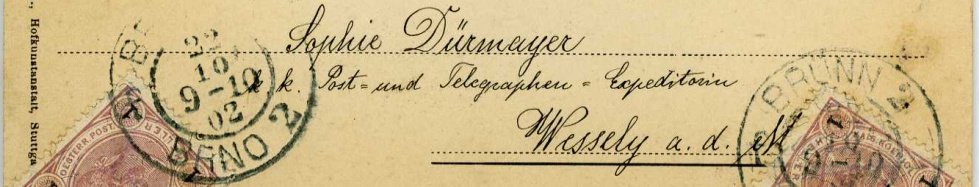 Sophie Dürmayer
k. k. Post= und Telegraphen = Expeditorin
Wessely a. d. M
Hofkunstanstalt, Stuttga
22
10
9-10
02
BRNO 2
BRÜNN 2
9-10
OESTERR. POST